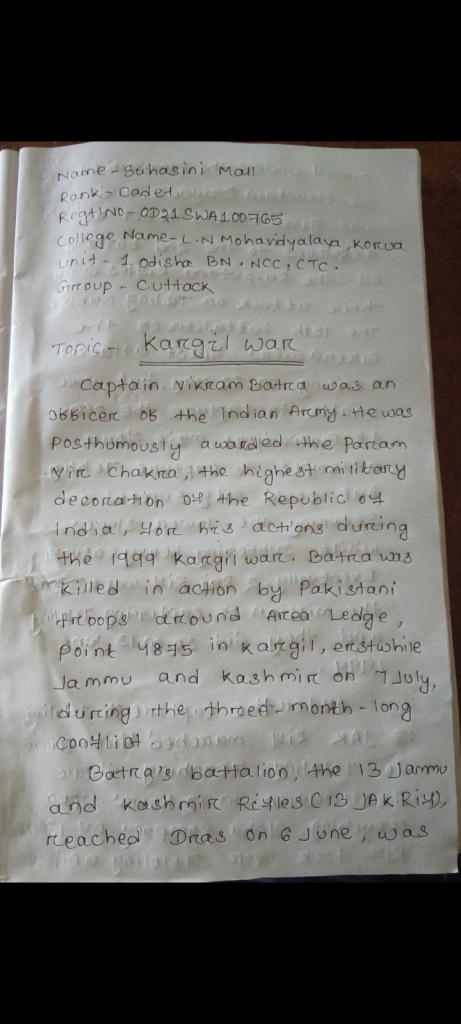 Name - Suhasini Mall
Rank - Cadet
Regtl NO - OD21SWA100765
College Name - L.N Mohavidyalaya, Korua
unit - 1 odisha BN. NCC, CTC.
Group - Cuttack
TOPIC - Kargil war
Captain Vikram Batra was an
officer of the Indian Army. He was
posthumously awarded the Param
Vir Chakra, the highest military
decoration of the Republic of
India, for his actions during
the 1999 Kargil war. Batra was
killed in action by Pakistani
troops around Area Ledge,
Point 4875 in Kargil, erstwhile
Jammu and Kashmir on 7 July,
during the threed-month-long
confliat.
Batra's battalion, the 13 Jammu
and Kashmir Rifles (13 JAK Rif),
reached Dras on 6 June, was